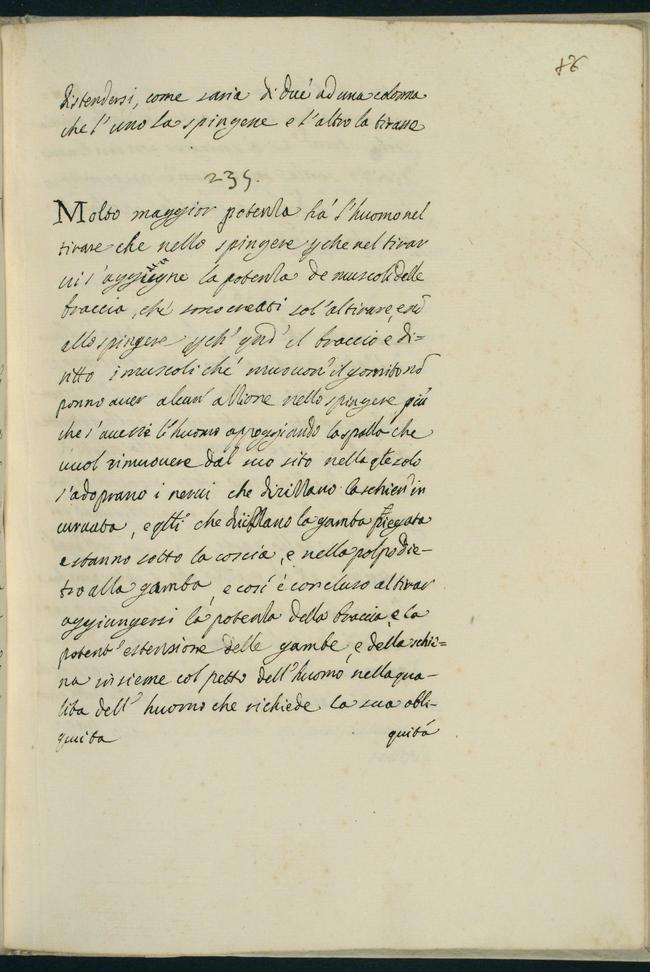 76
distendersi, come saria di due ad una colonna
che l'uno la spingene e l'altro la tirasse
235.
Molto maggior potenza ha l'huomo nel
tirare che nello spingere, pche nel tirar
vi s'aggiugne la potenza de muscoli delle
braccia, che sono creati sol' al tirare, e nō
allo spingere pch' qnd' il braccio è di=
ritto i muscoli che muovon' il gomito nō
ponno aver alcun' attione nello spingere più
che s'avesse l'huomo appoggiando la spalla che
vuol rimuovere dal suo sito nella qle solo
s'adoprano i nervi che dirizzano la schien' in
curvata, e qlli che dirizzano la gamba piegata
e stanno sotto la coscia, e nella polpa die-
tro alla gamba, e cosi è concluso al tirar
aggiungersi la potenza della braccia, e la
potent' estensione delle gambe, e della schie=
na insieme col petto dell'huomo, nella qua-
lita dell' huomo che richiede la sua obli-
quita quità